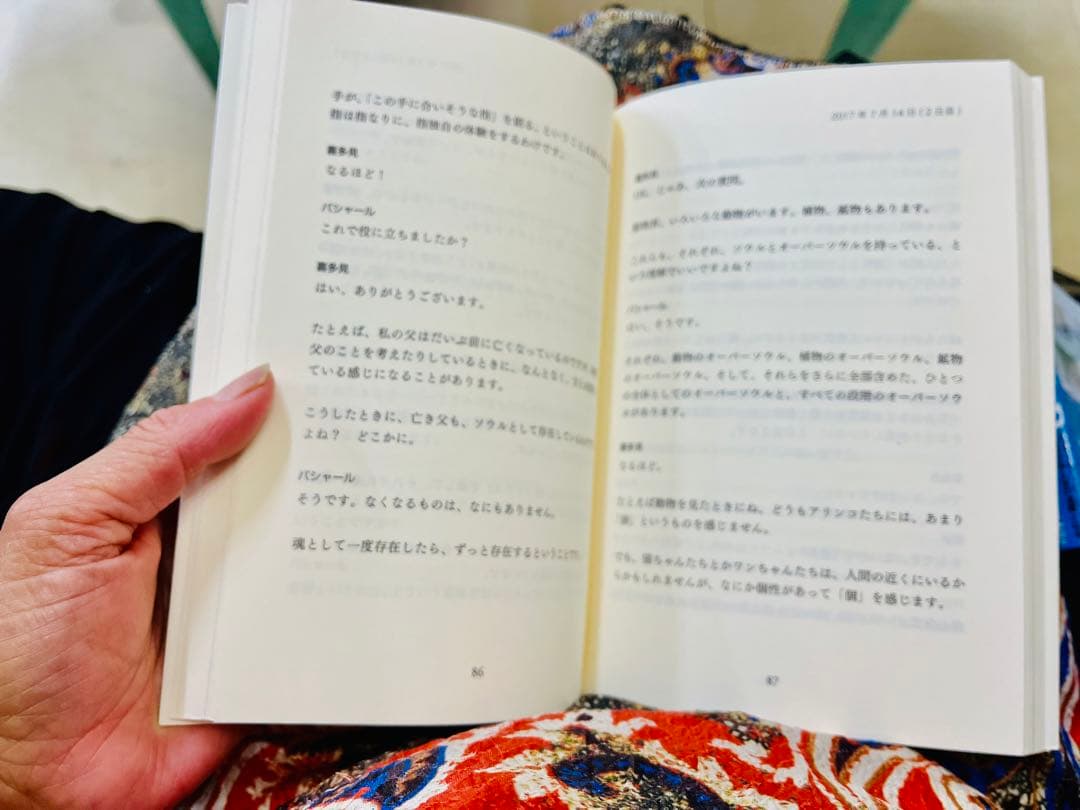 手が、「この手に合いそうな指」を創る、ということ
指は指なりに、指独自の体験をするわけです。
喜多見
なるほど！
バシャール
これで役に立ちましたか？
喜多見
はい、ありがとうございます。
たとえば、私の父はだいぶ前に亡くなっている
父のことを考えたりしているときに、なんとなく、
ている感じになることがあります。
こうしたときに、亡き父も、ソウルとして存在している
よね？ どこかに。
バシャール
そうです。なくなるものは、なにもありません。
魂として一度存在したら、ずっと存在するということです
86
2017年7月14日(2日目)
喜多見
次の質問。
地球は、いろいろな動物がいます。植物、鉱物もあります。
これらも、それぞれ、ソウルとオーバーソウルを持っている、と
いう理解でいいですよね？
バシャール
はい、そうです。
それぞれ、動物のオーバーソウル、植物のオーバーソウル、鉱物
のオーバーソウル、そして、それらをさらに全部含めた、ひとつ
の全体としてのオーバーソウルと、すべての段階のオーバーソウ
ルがあります。
喜多見
なるほど。
たとえば動物を見たときにね、どうもアリンコたちには、あまり
「個」というものを感じません。
でも、猫ちゃんたちとかワンちゃんたちは、人間の近くにいるか
らかもしれませんが、なにか個性があって「個」を感じます。
87